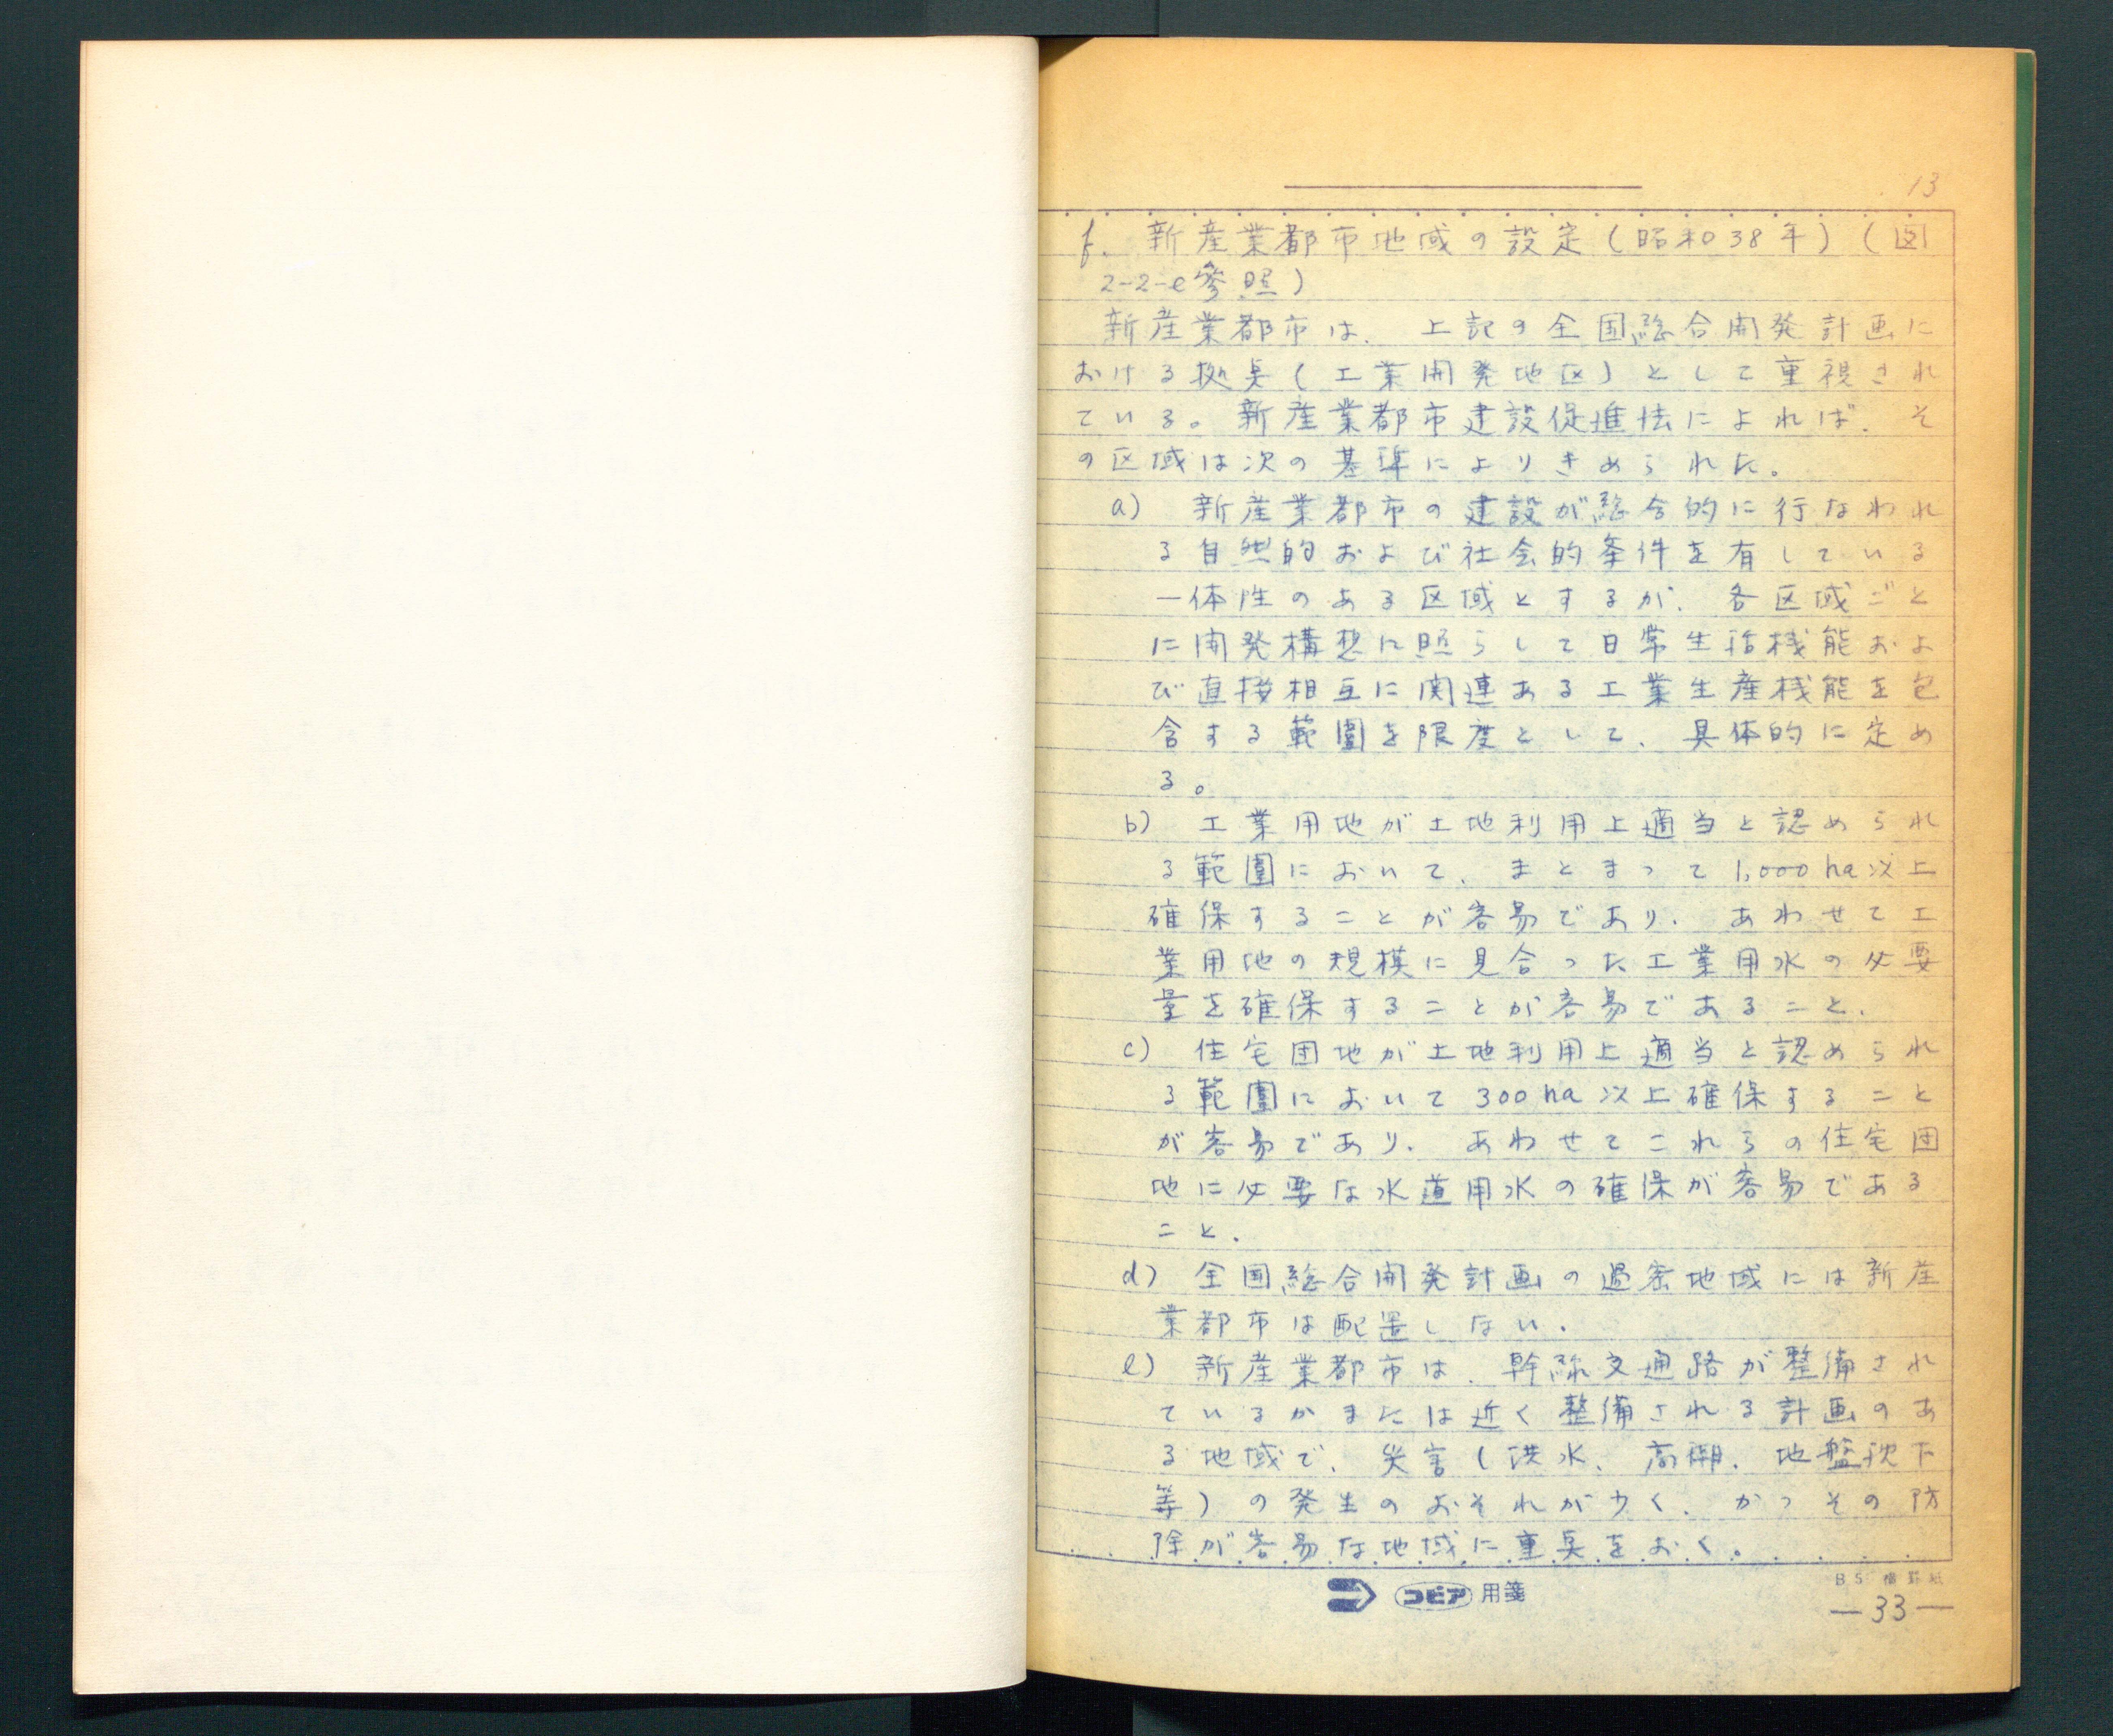 13
f. 新産業都市地域の設定(昭和38年)(図
2-2-e参照)
新産業都市は、上記の全国総合開発計画に
おける拠点(工業開発地区)として重視され
ている。新産業都市建設促進法によれば、そ
の区域は次の基準によりきめられた。
a) 新産業都市の建設が総合的に行なわれ
る自然的および社会的条件を有している
一体性のある区域とするが、各区域ごと
に開発構想に照らして日常生活機能およ
び直接相互に関連ある工業生産機能を包
含する範囲を限度として、具体的に定め
る。
b) 工業用地が土地利用上適当と認められ
る範囲において、まとまって1,000ha以上
確保することが容易であり、あわせて工
業用地の規模に見合った工業用水の必要
量を確保することが容易であること.
c) 住宅団地が土地利用上適当と認められ
る範囲において300ha以上確保すること
が容易であり、あわせてこれらの住宅団
地に必要な水道用水の確保が容易である
こと.
d) 全国総合開発計画の過密地域には新産
業都市は配置しない.
e) 新産業都市は、幹線交通路が整備され
ているかまたは近く整備される計画のあ
る地域で、災害(洪水、高潮、地盤沈下
等)の発生のおそれが少く、かつその防
除が容易な地域に重点をおく。
コピア用箋
B5 横罫紙
—33—